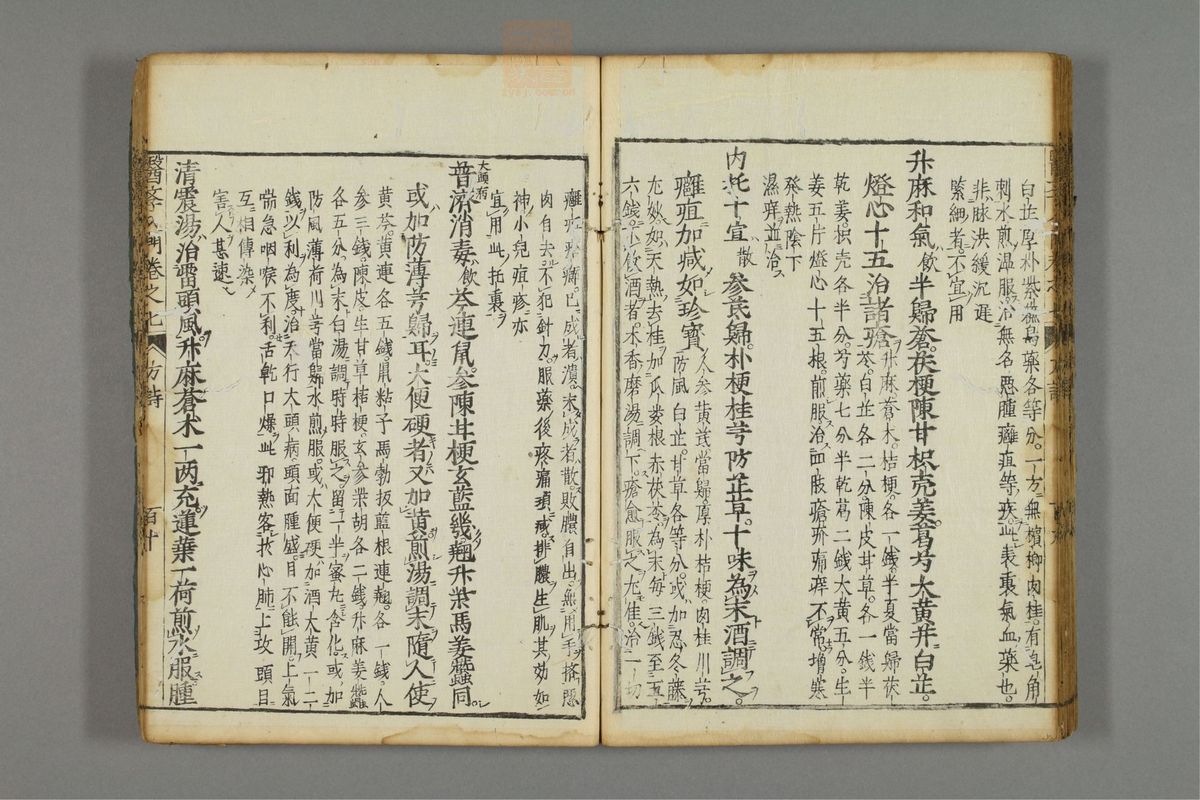 白芷厚朴紫蘇烏藥各等分。一方無檳榔肉桂。有皂角
刺水煎溫服。治無名惡腫癰疽等疾。此表裏氣血藥也。
非脉洪緩沉遲
緊細者不宜用
升麻和氣飲半歸蒼。茯梗陳甘枳壳姜。葛芍大黃并白芷。
燈心十五治諸瘡
升麻蒼木。桔梗。各一錢。半夏當歸茯
苓。白芷各二分。陳皮甘草。各一錢半
乾姜。枳壳各半分。芍藥七分半乾葛二錢大黃五分。生
姜五片燈心十五根。煎服治血肢瘡疥痛痒不常增寒
發熱陰下
濕痒並治
內托十宜散 參芪歸。朴梗桂芎防芷草。十味為末酒調之。
癰疽加减如珍寶
人參黃芪當歸。厚朴桔梗肉桂川芎。
防風白芷。甘草各等分。或加忍冬藤
尤妙。如天熱去桂加瓜蔞根赤茯苓。為末每三錢至五
六錢。不飲酒者。木香磨湯調下。瘡愈服之尤佳。治一切
癰疽瘡癤。已成者潰。未成者散。敗膿自出。無用手擠惡
肉自去。不犯針刀。服藥後疼痛頓减。排膿生肌其効如
神小兒疽疹亦
宜用此托裏
大頭病
普濟消毒飲芩連鼠。參陳甘梗玄藍幾。翹升柴馬姜蠶同。
或加防薄芎歸耳。大便硬者又加黃。煎湯調末隨人使
黃芩。黃連各五錢。鼠粘子馬勃板藍根連翹。各一錢人
參三錢。陳皮。生甘草桔梗。玄參柴胡各二錢升麻姜蠶
各五分為末白湯調時時服之留一半蜜丸含化。或加
防風薄荷川芎當歸水煎服。或大便硬加酒大黃一二
錢以利為度。治天行大頭病。頭面腫盛。目不能開。上氣
喘急咽喉不利。舌乾口燥。此邪熱客於心肺上攻頭目
互相傳染
害人甚速
清震湯治雷頭風。升麻蒼木一两充。蓮葉一荷煎水服腫
卷之七 方詩 百十